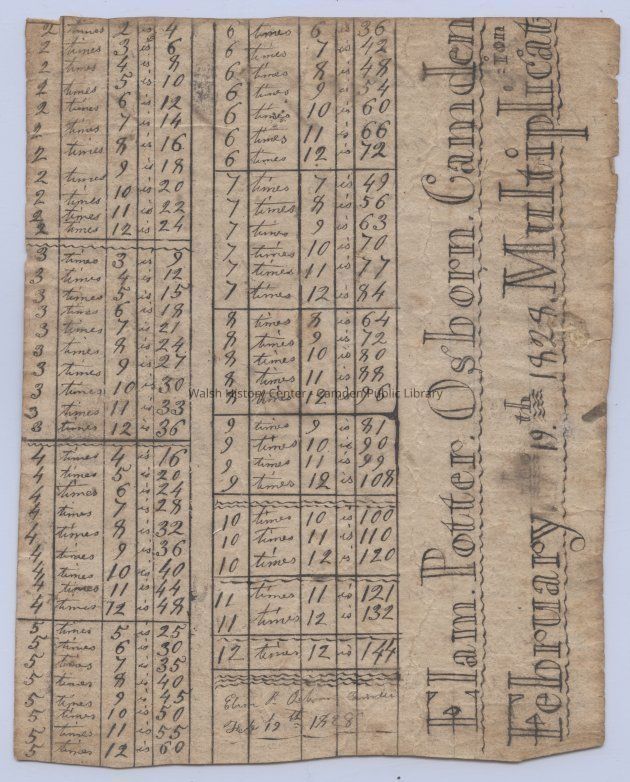 2 times 2 is 4
2 times 3 is 6
2 times 4 is 8
2 times 5 is 10
2 times 6 is 12
2 times 7 is 14
2 times 8 is 16
2 times 9 is 18
2 times 10 is 20
2 times 11 is 22
2 times 12 is 24
3 times 3 is 9
3 times 4 is 12
3 times 5 is 15
3 times 6 is 18
3 times 7 is 21
3 times 8 is 24
3 times 9 is 27
3 times 10 is 30
3 times 11 is 33
3 times 12 is 36
4 times 4 is 16
4 times 5 is 20
4 times 6 is 24
4 times 7 is 28
4 times 8 is 32
4 times 9 is 36
4 times 10 is 40
4 times 11 is 44
4 times 12 is 48
5 times 5 is 25
5 times 6 is 30
5 times 7 is 35
5 times 8 is 40
5 times 9 is 45
5 times 10 is 50
5 times 11 is 55
5 times 12 is 60
6 times 6 is 36
6 times 7 is 42
6 times 8 is 48
6 times 9 is 54
6 times 10 is 60
6 times 11 is 66
6 times 12 is 72
7 times 7 is 49
7 times 8 is 56
7 times 9 is 63
7 times 10 is 70
7 times 11 is 77
7 times 12 is 84
8 times 8 is 64
8 times 9 is 72
8 times 10 is 80
8 times 11 is 88
8 times 12 is 96
9 times 9 is 81
9 times 10 is 90
9 times 11 is 99
9 times 12 is 108
10 times 10 is 100
10 times 11 is 110
10 times 12 is 120
11 times 11 is 121
11 times 12 is 132
12 times 12 is 144
Elam P. Osborn Camden
Feb 19th 1828
Elam. Potter. Osborn. Camden
February. 19.th 1828. Multiplicat
=ion
Walsh History Center - Camden Public Library